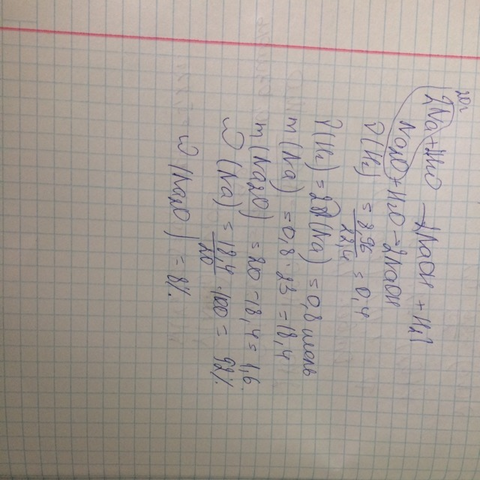 20г
2Na + 2H2O → 2NaOH + H2↑
Na2O + H2O → 2NaOH
ν(H2) = 8,96 / 22,4 = 0,4
ν(H2) = 2ν(Na) = 0,8 моль
m(Na) = 0,8 · 23 = 18,4
m(Na2O) = 20 - 18,4 = 1,6
ω(Na) = 18,4 / 20 · 100 = 92%
ω(Na2O) = 8%